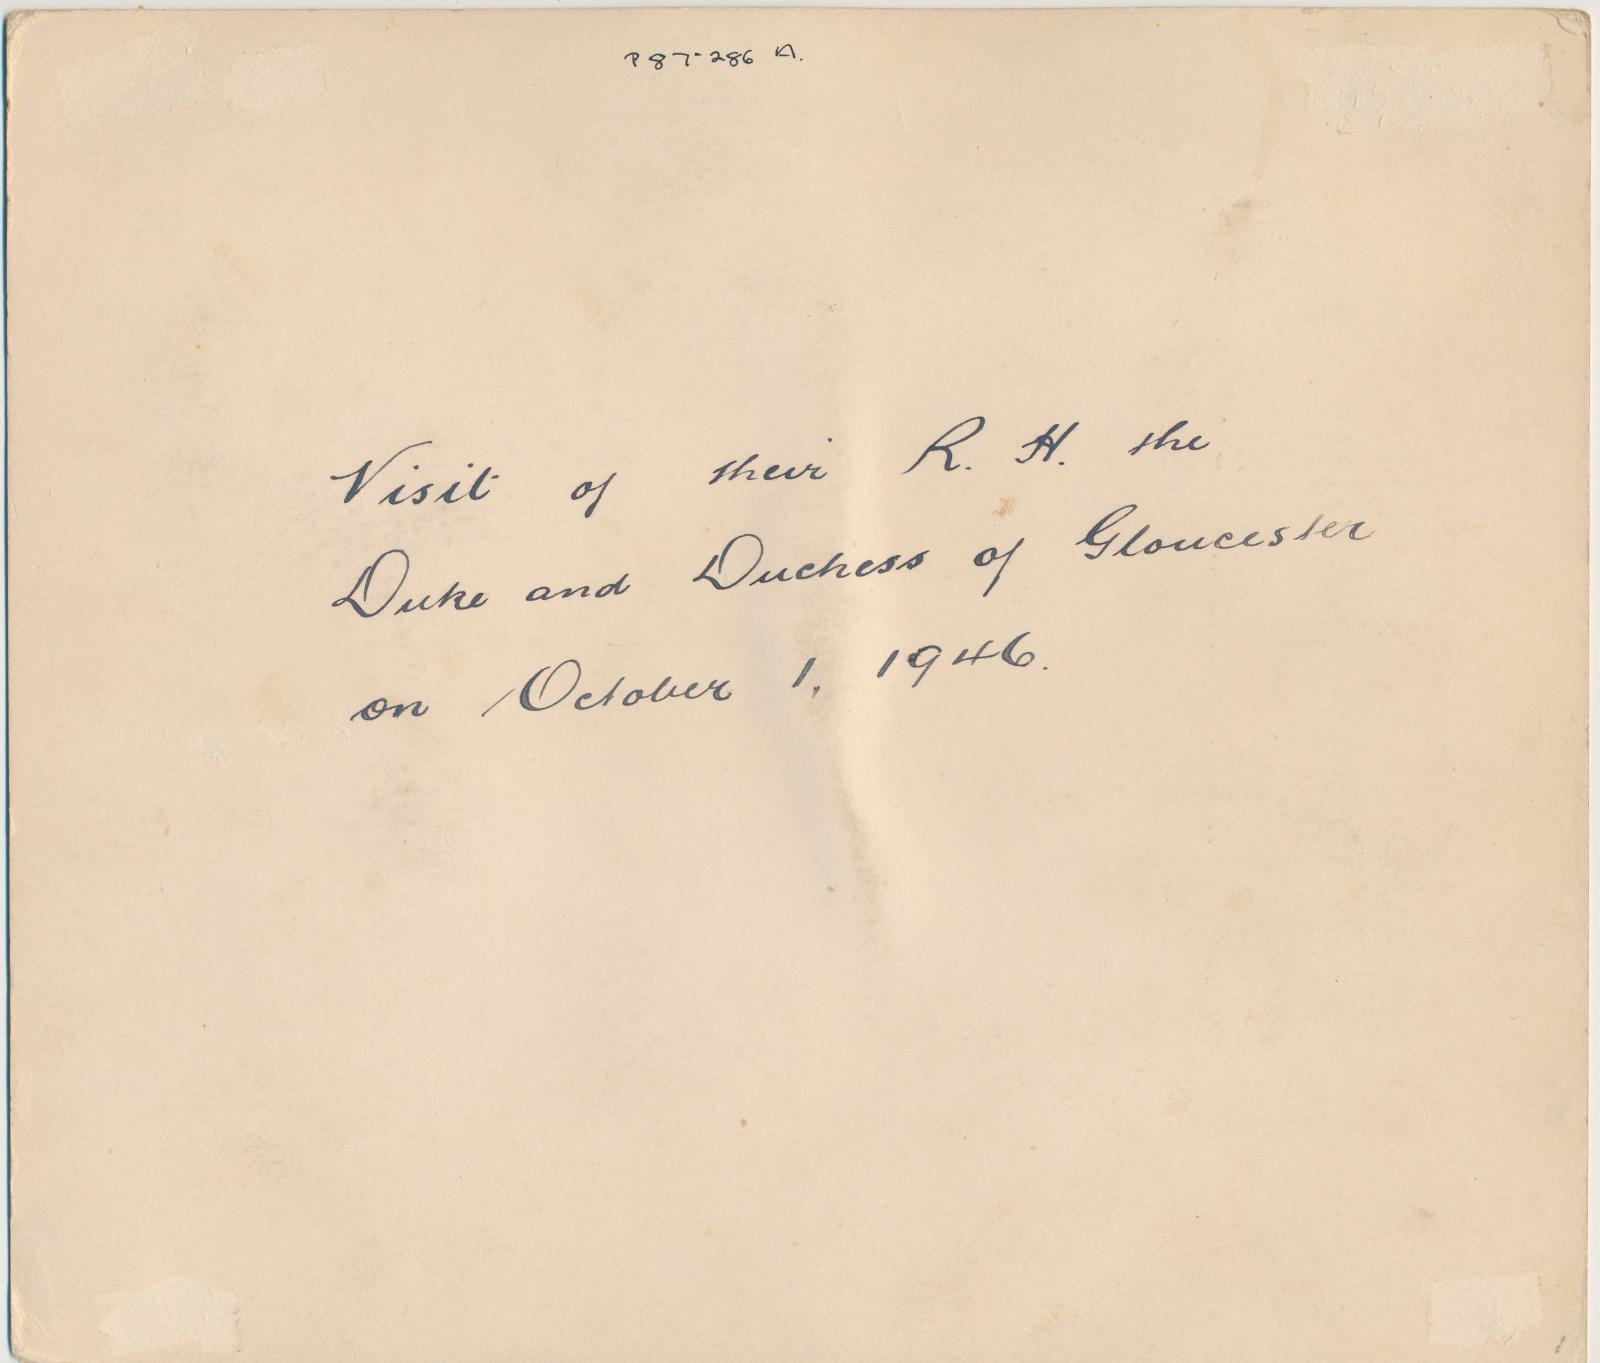 P87-286 A.
Visit of their R. H. the
Duke and Duchess of Gloucester
on October 1, 1946.